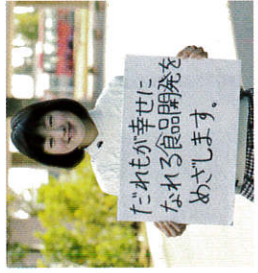 だれもが幸せに
なれる食品開発を
めざします。